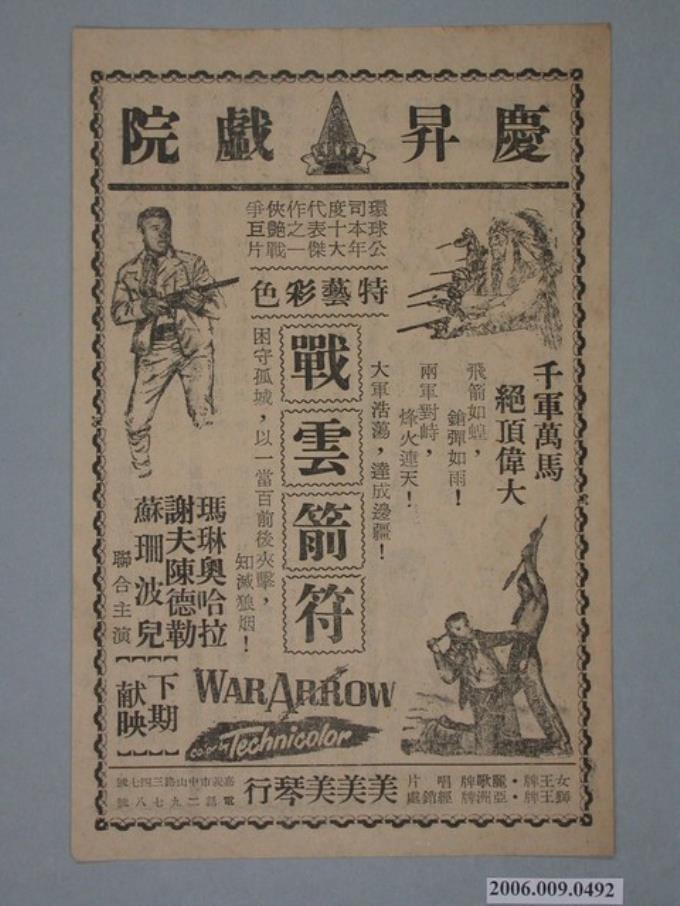 慶昇戲院
環球公
司本年
度十大
代表傑
作之一
俠艷戰
爭巨片
特藝彩色
戰雲箭符
千軍萬馬
絕頂偉大
飛箭如蝗，
鎗彈如雨！
兩軍對峙，
烽火連天！
大軍浩蕩，達成邊疆！
困守孤城，以一當百前後夾擊，
知滅狼烟！
瑪琳奧哈拉
謝夫陳德勒
蘇珊波兒
聯合主演
下期
献映
WAR ARROW
color by Technicolor
女王牌・麗歌牌唱片
獅王牌・亞洲牌經銷處
美美美琴行
嘉義市中山路三四七號
電話二九七八號
2006.009.0492